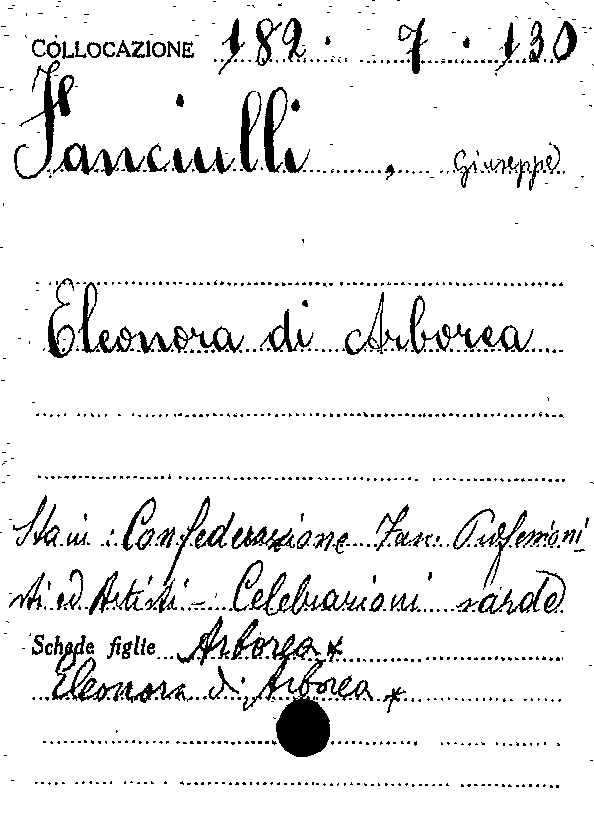 COLLOCAZIONE 182 . 7 . 130
Fanciulli , Giuseppe
Eleonora di Arborea
Sta in : Confederazione Fas. Professioni
sti ed Artisti - Celebrazioni sarde
Schede figlie Arborea *
Eleonora di Arborea *